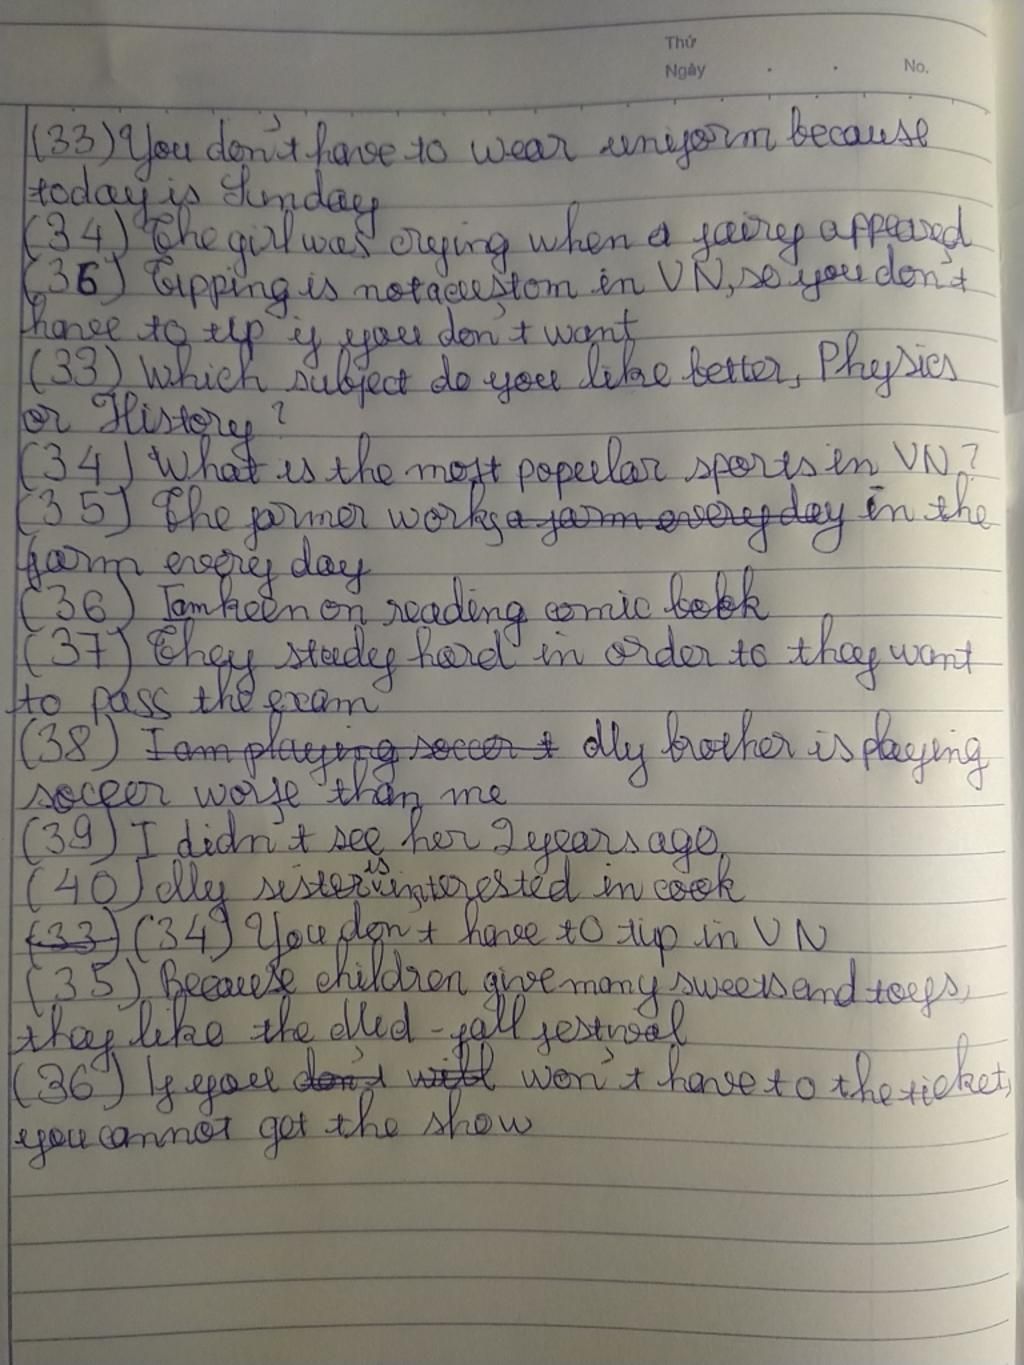 Thứ
Ngày . . No.
(33) You don't have to wear uniform because
today is Sunday
(34) The girl was crying when a fairy appeared
(36) Tipping is not a custom in VN, so you don't
have to tip if you don't want
(33) Which subject do you like better, Physics
or History?
(34) What is the most popular sports in VN?
(35) The farmer works a farm every day in the
farm every day
(36) I am keen on reading comic book
(37) They study hard in order to they want
to pass the exam
(38) I am playing soccer t My brother is playing
soccer worse than me
(39) I didn't see her 2 years ago
(40) My sister is interested in cook
(33) (34) You don't have to tip in VN
(35) Because children give many sweets and toys,
they like the Mid-fall festival
(36) If you don't will won't have to the ticket,
you cannot get the show